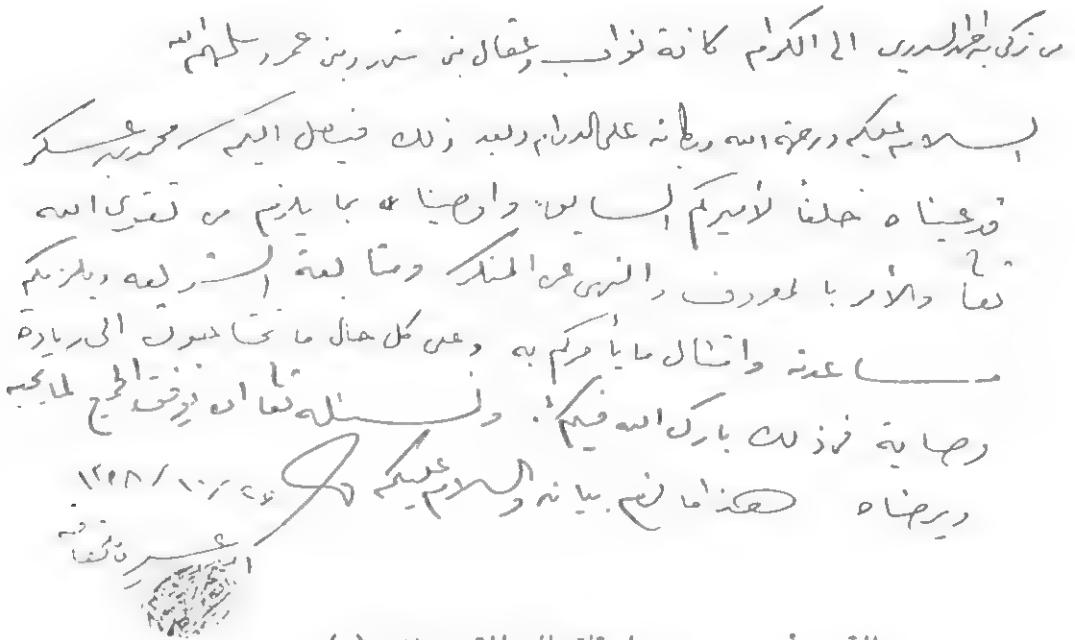 من تركي بن احمد السديري الى الكرام كافة نواب وعقال بني شهر وبني عمرو سلمهم الله
السلام عليكم ورحمة الله وبركاته على الدوام وبعد ذلك فيصل اليكم محمد بن عسكر
قد عيناه خلفاً لأميركم السابق واوصيناه بما يلزم من تقوى الله
تعا والأمر بالمعروف والنهي عن المنكر ومتابعة الشريعه ويلزمكم
مساعدته وامتثال ما يأمركم به وعلى كل حال ما تحتاجون الى زيادة
وصاية في ذلك بارك الله فيكم. ونسئله تعا ان يوفق الجميع لما يحبه
ويرضاه هذا ما لزم بيانه والسلام عليكم
١٣٥٨/١٠/٢٤